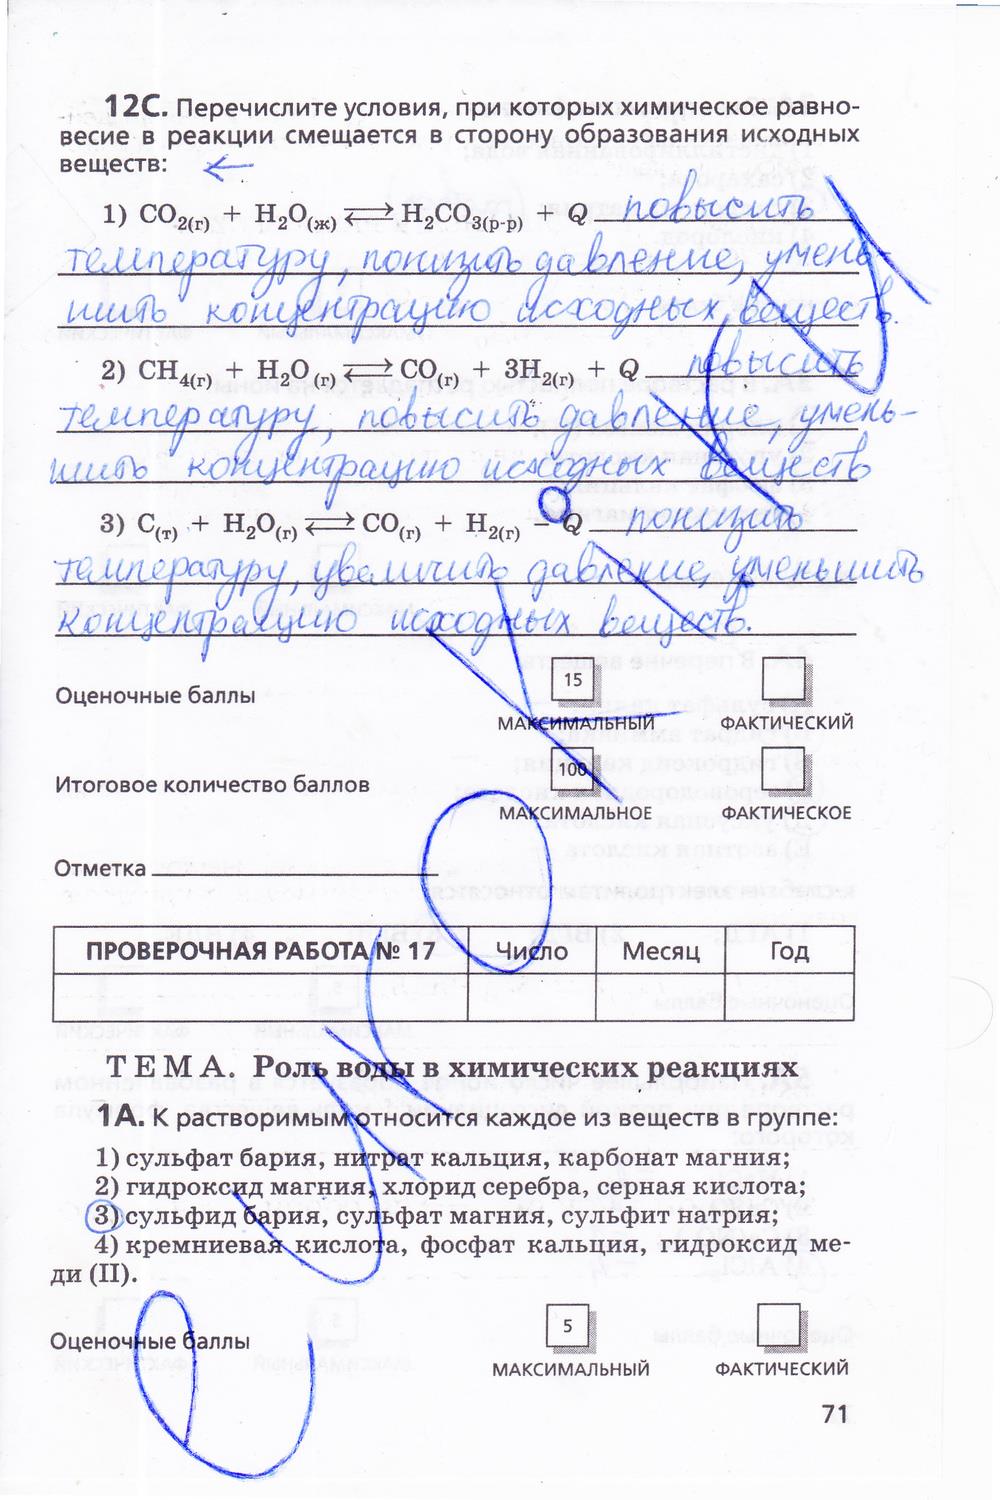 12С. Перечислите условия, при которых химическое равно-
весие в реакции смещается в сторону образования исходных
веществ: ←
1) CO2(г) + H2O(ж) ⇄ H2CO3(р-р) + Q повысить
температуру, понизить давление, умень
шить концентрацию исходных веществ.
2) CH4(г) + H2O(г) ⇄ CO(г) + 3H2(г) + Q повысить
температуру, повысить давление, умень-
шить концентрацию исходных веществ
3) C(т) + H2O(г) ⇄ CO(г) + H2(г) – Q понизить
температуру, увеличить давление, уменьшить
концентрацию исходных веществ.
Оценочные баллы 15
МАКСИМАЛЬНЫЙ ФАКТИЧЕСКИЙ
Итоговое количество баллов 100
МАКСИМАЛЬНОЕ ФАКТИЧЕСКОЕ
Отметка
ПРОВЕРОЧНАЯ РАБОТА № 17 Число Месяц Год
ТЕМА. Роль воды в химических реакциях
1А. К растворимым относится каждое из веществ в группе:
1) сульфат бария, нитрат кальция, карбонат магния;
2) гидроксид магния, хлорид серебра, серная кислота;
3) сульфид бария, сульфат магния, сульфит натрия;
4) кремниевая кислота, фосфат кальция, гидроксид ме-
ди (II).
Оценочные баллы 5
МАКСИМАЛЬНЫЙ ФАКТИЧЕСКИЙ
71